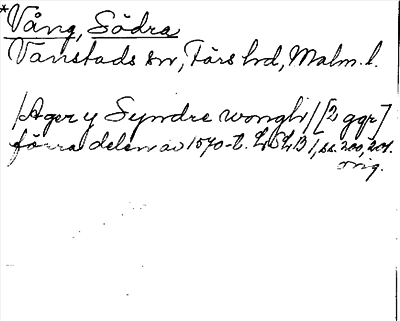 *Vång, Södra
Vanstads sn, Färs hd, Malm. l.
/Ager y Syndre wongh/ [2 ggr]
förra delen av 1570-t. LSLB 1, ss. 200, 201.
orig.